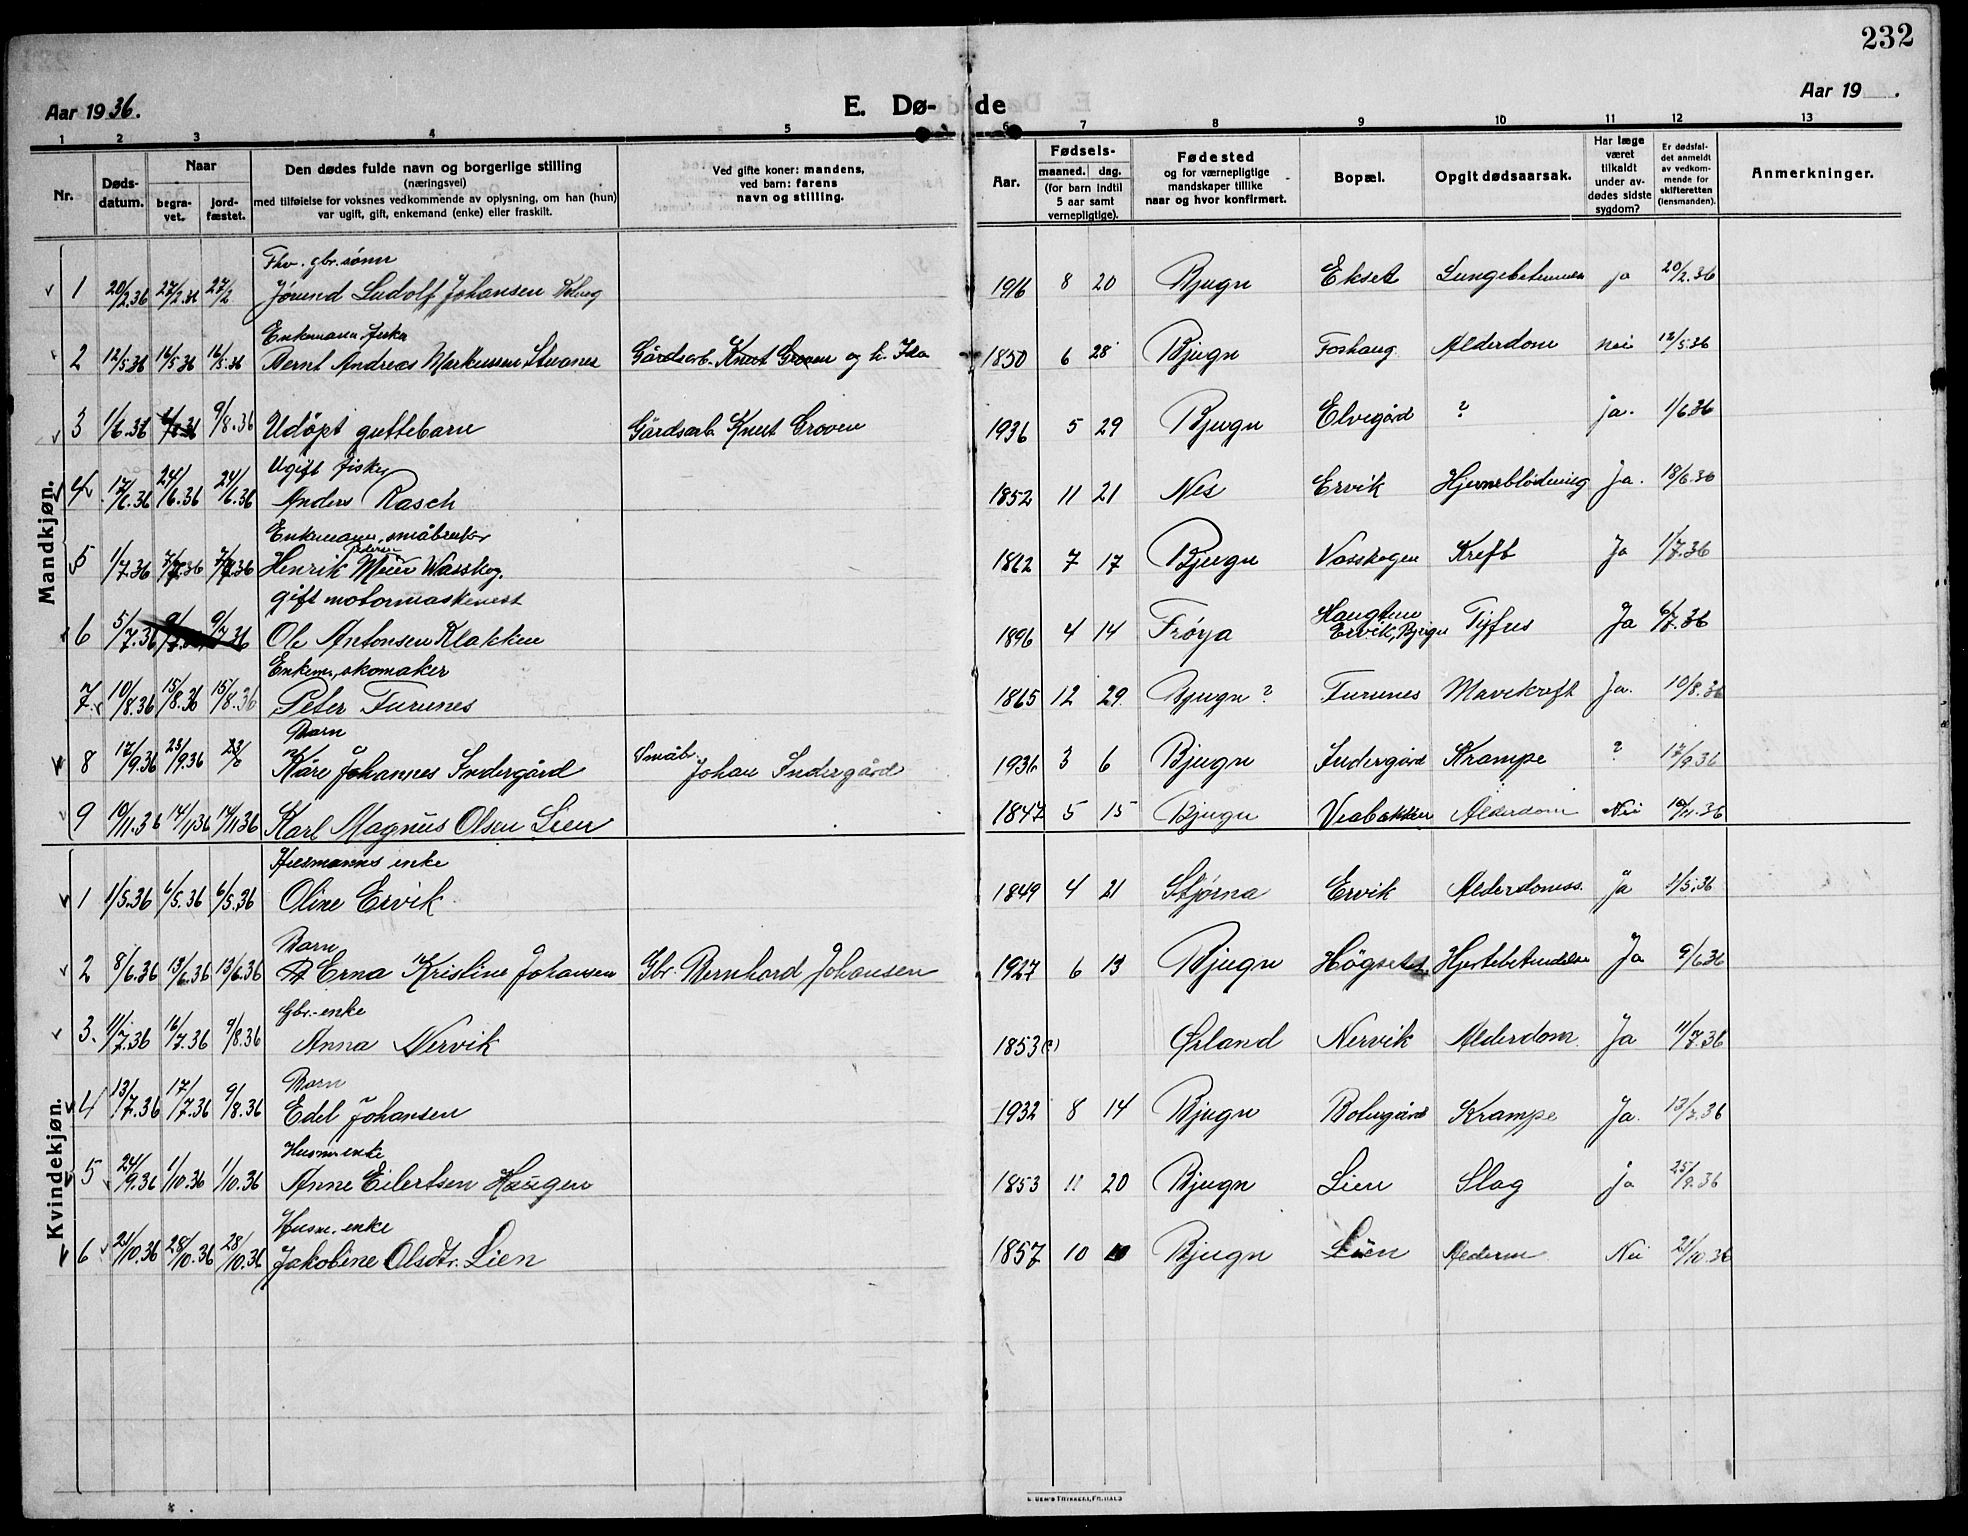 232
Aar 1936.
E. Dø-
de
Aar 19 .
1 2 3 4 5 6 7 8 9 10 11 12 13
Nr.
Døds-
datum.
Naar
begra-
vet.
jord-
fæstet.
Den dødes fulde navn og borgerlige stilling
(næringsvei)
med tilføielse for voksnes vedkommende av oplysning, om han (hun)
var ugift, gift, enkemand (enke) eller fraskilt.
Ved gifte koner: mandens,
ved barn: farens
navn og stilling.
Aar.
Fødsels-
maaned. dag.
(for barn indtil
5 aar samt
vernepligtige).
Fødested
og for værnepligtige
mandskaper tillike
naar og hvor konfirmert.
Bopæl.
Opgit dødsaarsak.
Har læge
været
tilkaldt
under av-
dødes sidste
sygdom?
Er dødsfal-
det anmeldt
av vedkom-
mende for
skifteretten
(lensmanden).
Anmerkninger.
Mandkjøn.
Fhv. gbr. sønn
1 20/2.36 27/2.36 27/2 Jørund Ludolf Johansen 1916 8 20 Bjugn Ekset Lungebetennelse ja 20/2.36
Enkemann, fisker
2 12/5.36 16/5.36 16/5.36 Bernt Andreas Markussen Gårdsarb. Knut Groven og h. Ida 1850 6 28 Bjugn Foshaug Alderdom nei 12/5.36
3 1/6.36 6/8.36 9/8.36 Udöpt guttebarn Gårdsarb. Knut Groven 1936 5 29 Bjugn Elvegård ? ja. 1/6.36
Ugift fisker
4 17/6.36 24/6.36 24/6.36 Anders Rasch 1852 11 21 Nes Ervik Hjerneblödning Ja. 18/6.36
Enkemann, småbruker
Pedersen
5 1/7.36 7/7.36 7/7.36 Henrik Meier Wasskog. 1862 7 17 Bjugn Vasskogen Kreft Ja 1/7.36
gift motormaskinist
6 5/7.36 9/7.36 9/7.36 Ole Antonsen Klakken 1896 4 14 Fröya Ervik, Bjugn Tyfus Ja 6/7.36
Enkem., skomaker
7. 10/8.36 15/8.36 15/8.36 Peter Furunes 1865 12 29 Bjugn? Furunes Mavekreft Ja. 10/8.36
Barn
8 17/9.36 23/9.36 Kåre Johannes Indergård Småb. Johan Indergård 1936 3 6 Bjugn Indergård Krampe ? 17/9.36
9 10/11.36 14/11.36 14/11.36 Karl Magnus Olsen Lien 1847 5 15 Bjugn Veabakken Alderdom Nei 10/11.36
Kvindekjøn.
Husmanns enke
1 1/5.36 6/5.36 6/5.36 Oline Ervik 1849 4 21 Stjørna Ervik Alderdomss. Ja 2/5.36
Barn
2 8/6.36 13/6.36 13/6.36 Erna Kristine Johansen Gbr. Bernhard Johansen 1927 6 13 Bjugn Högset Hjertebetendelse Ja 9/6.36
Gbr.-enke
3. 11/7.36 16/7.36 9/8.36 Anna Nervik 1853(?) Ørland Nervik Alderdom. Ja 11/7.36
Barn
4 13/7.36 17/7.36 9/8.36 Edel Johansen 1932 8 14 Bjugn Botngård Krampe Ja. 13/7.36
Husm. enke
5 24/9.36 1/10.36 1/10.36 Anne Eilertsen Haugen 1853 11 20 Bjugn Lien Slag ja 25/9.36
Husm. enke
6 21/10.36 28/10.36 28/10.36 Jakobine Olsdtr. Lien 1857 10 10 Bjugn Lien Alderm Nei 21/10.36